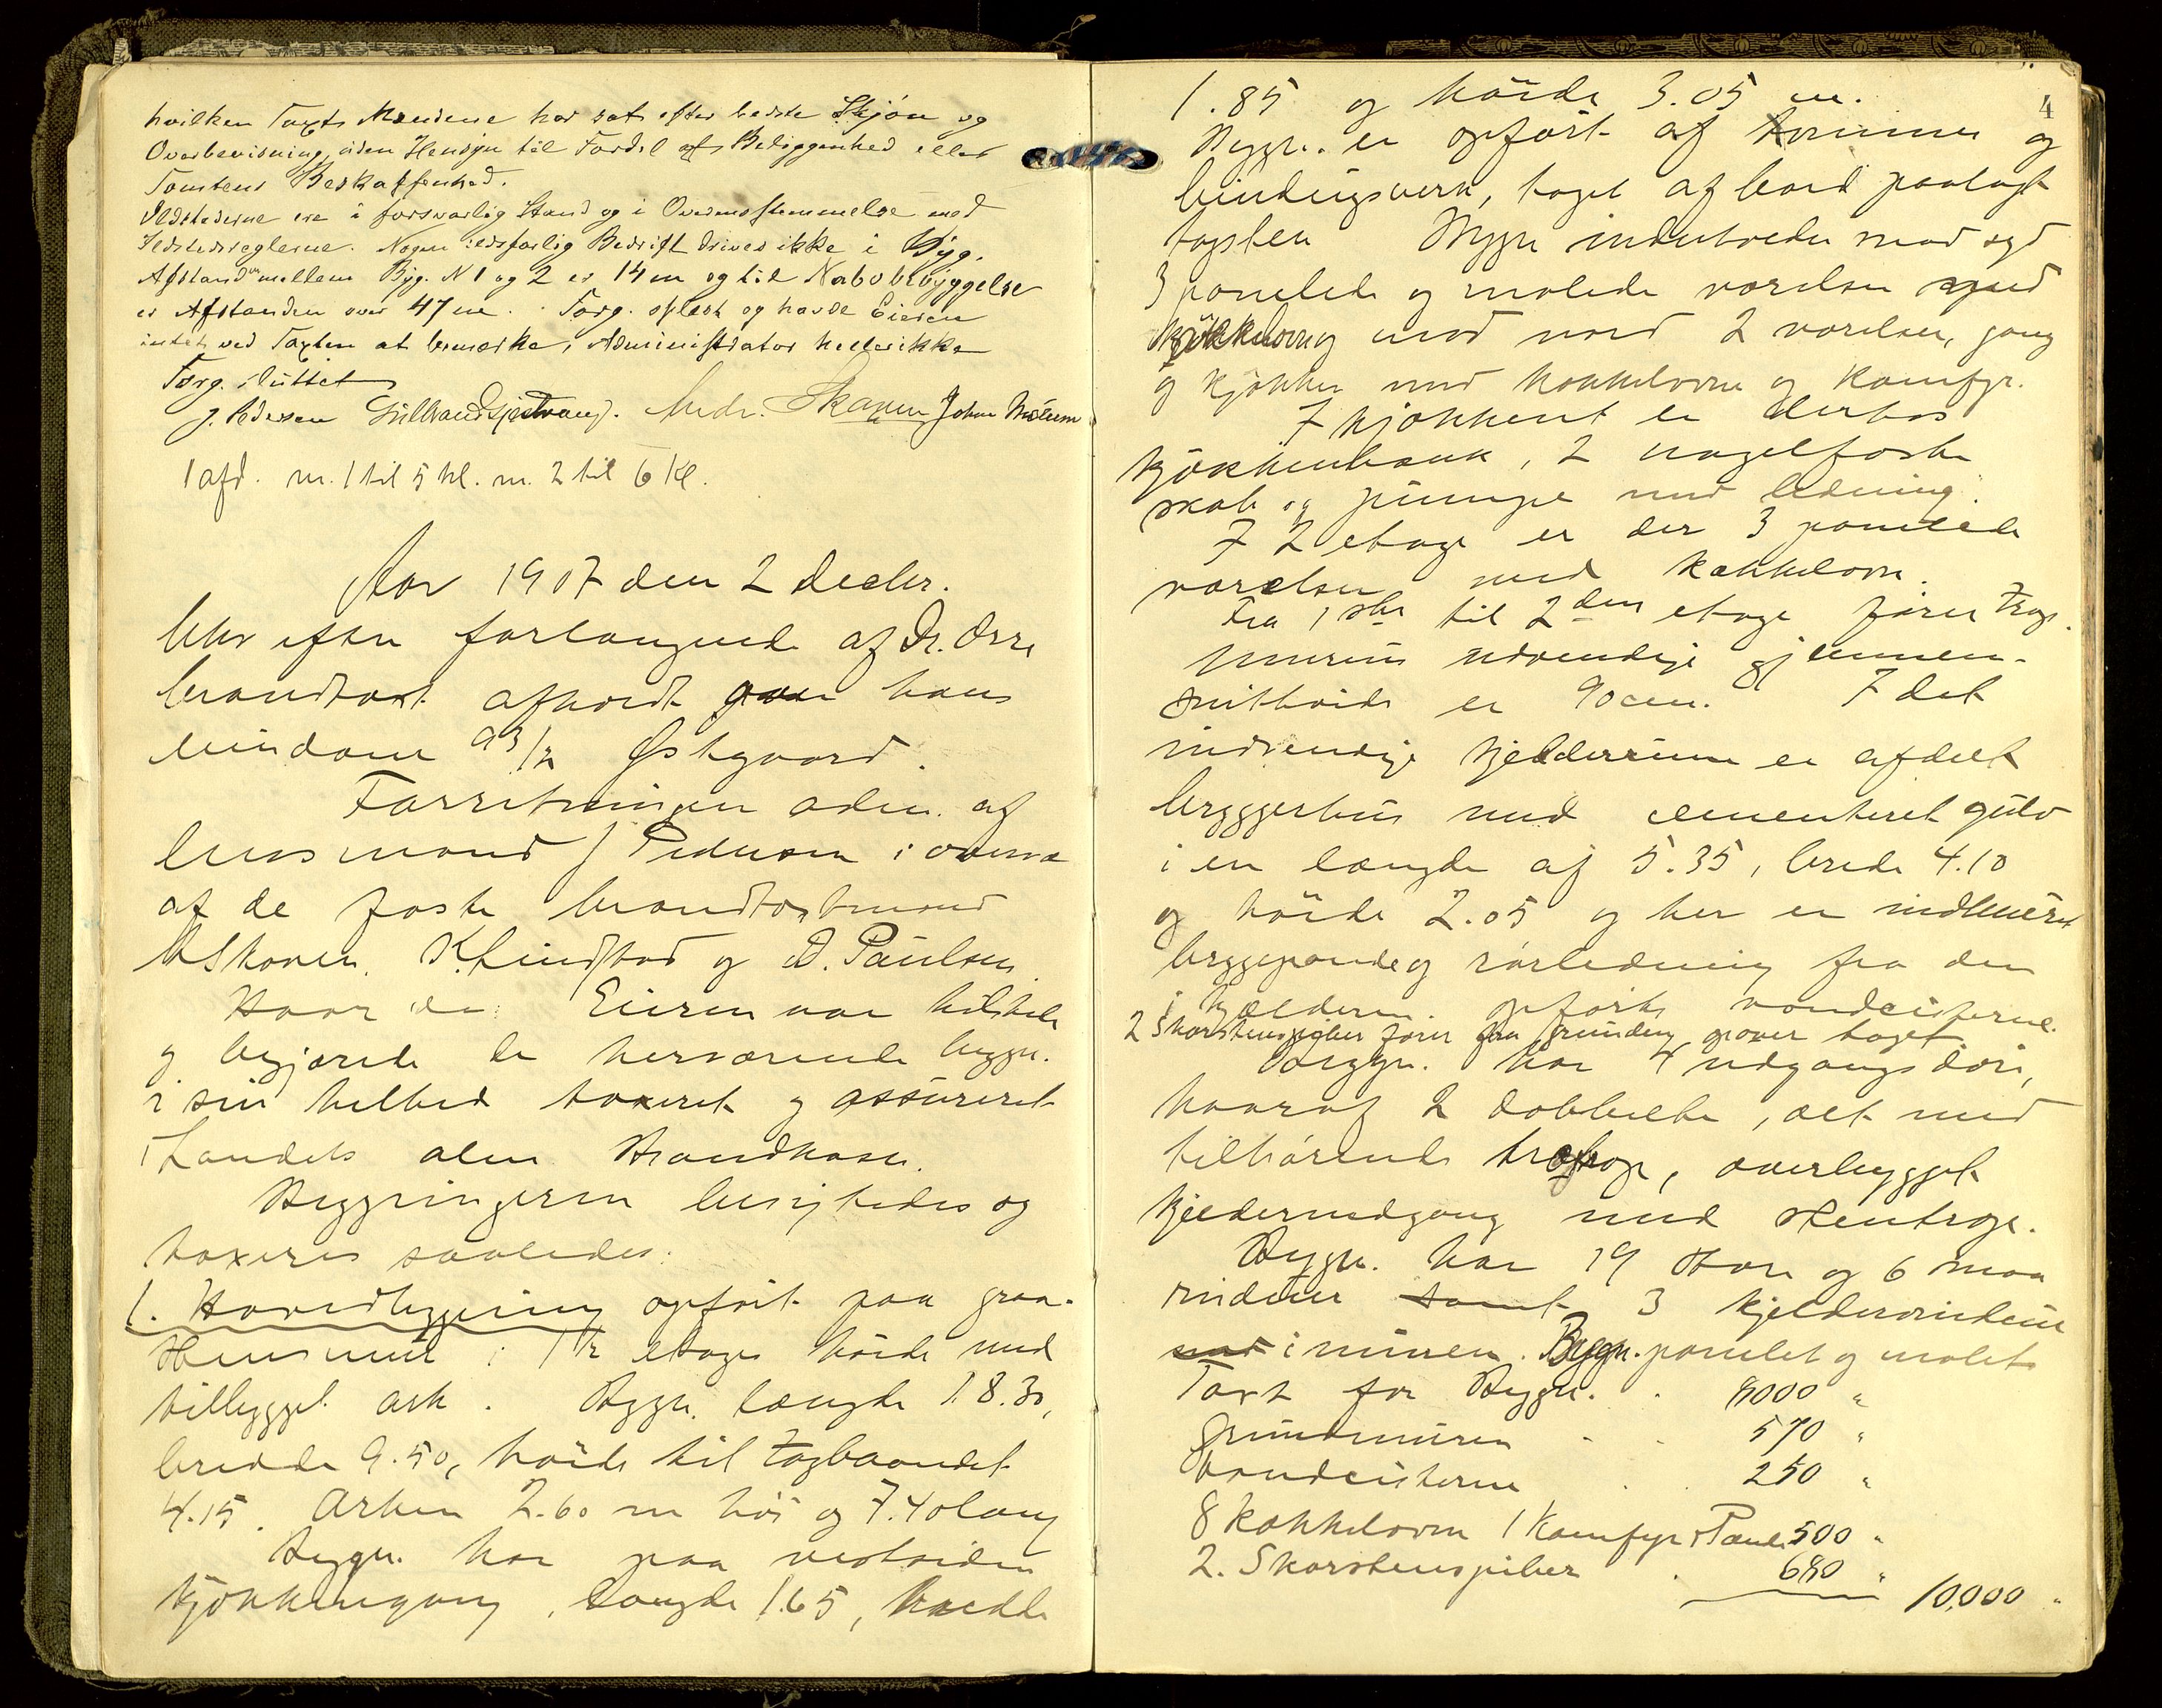 hvilken Taxt Mændene har sat efter bedste Skjøn og
Overbevisning, uden Hensyn til Fordel af Beliggenhed eller
Tomtens Beskaffenhed.
Ildstederne ere i forsvarlig Stand og i Overensstemmelse med
Ildstedsreglerne. Nogen ildsfarlig Bedrift drives ikke i Byg.
Afstanden mellem Byg. N 1 og 2 er 14 m og til Nabobebyggelse
er Afstanden over 47 m. Forg. oplæst og havde Eieren
intet ved Taxten at bemærke, Administrator heller ikke
Forg. sluttet
J. Pedersen Andr. Skaven Johan
1 afd. nr. 1 til 5 kl. nr. 2 til 6 Kl.
Aar 1907 den 2 Decbr.
blev efter forlangende af Dr. Orre
brandtaxt afholdt over hans
eiendom 93/2 Østgaard.
Forretningen adm. af
lensmand J Pedersen i overvær
af de faste brandtaxtmænd
A Skaven. K. Lindstad og D. Paulsen
Hvor da: Eieren var tilstede
og begjærede de herværende bygn.
i sin helhed taxeret og assureret
i Landets alm Brandkasse.
Bygningerne besigtedes og
taxeres saaledes:
1. Hovedbygning opført paa graa-
stensmur i 1 1/2 etages høide med
tilbygget ark. Bygn. længde 18.30,
bredde 9.50, høide til tagbaandet
4.15. Arken 2.60 m høi og 7.40 lang
Bygn. har paa vestsiden
kjøkkengang, længde 1.65, bredde
4
1.85 og høide 3.05 m.
Bygn. er opført af tømmer og
bindingsverk, taget af bord paalagt
tagsten Bygn indeholder mod syd
3 panelede og malede værelser med
kakkelovn og mod nord 2 værelser, gang
og kjøkken med kakkelovn og komfyr.
I kjøkkenet er derhos
kjøkkenbænk, 2 nagelfaste
skabe og pumpe med ledning.
I 2 etage er der 3 panelede
værelser med kakkelovn.
Fra 1ste til 2den etage fører trap.
Murens udvendige gjennem-
snitshøide er 90 cm. I det
indvendige kjelderrum er afdelt
bryggerhus med cementeret gulv
i en længde af 5.35, brede 4.10
og høide 2.05 og her er indmuret
bryggepande og rørledning fra den
i kjælderen opførte vandcisterne.
2 Skorstenspiber fører fra grunden og over taget
Bygn. har 4 udgangsdøre,
hvoraf 2 dobbelte, alt med
tilhørende trætrap, overbygget
kjeldernedgang med stentrap.
Bygn. har 19 store og 6 smaa
vinduer samt 3 kjeldervinduer
i muren. Bygn. panelet og malet
Taxt for Bygn. . 8000 "
Grundmuren . . 570 "
Vandcisterne . . 250 "
8 kakkelovn 1 Komfyr 1 Pande 500 "
2. Skorstenspiber . 680 "
10,000 "